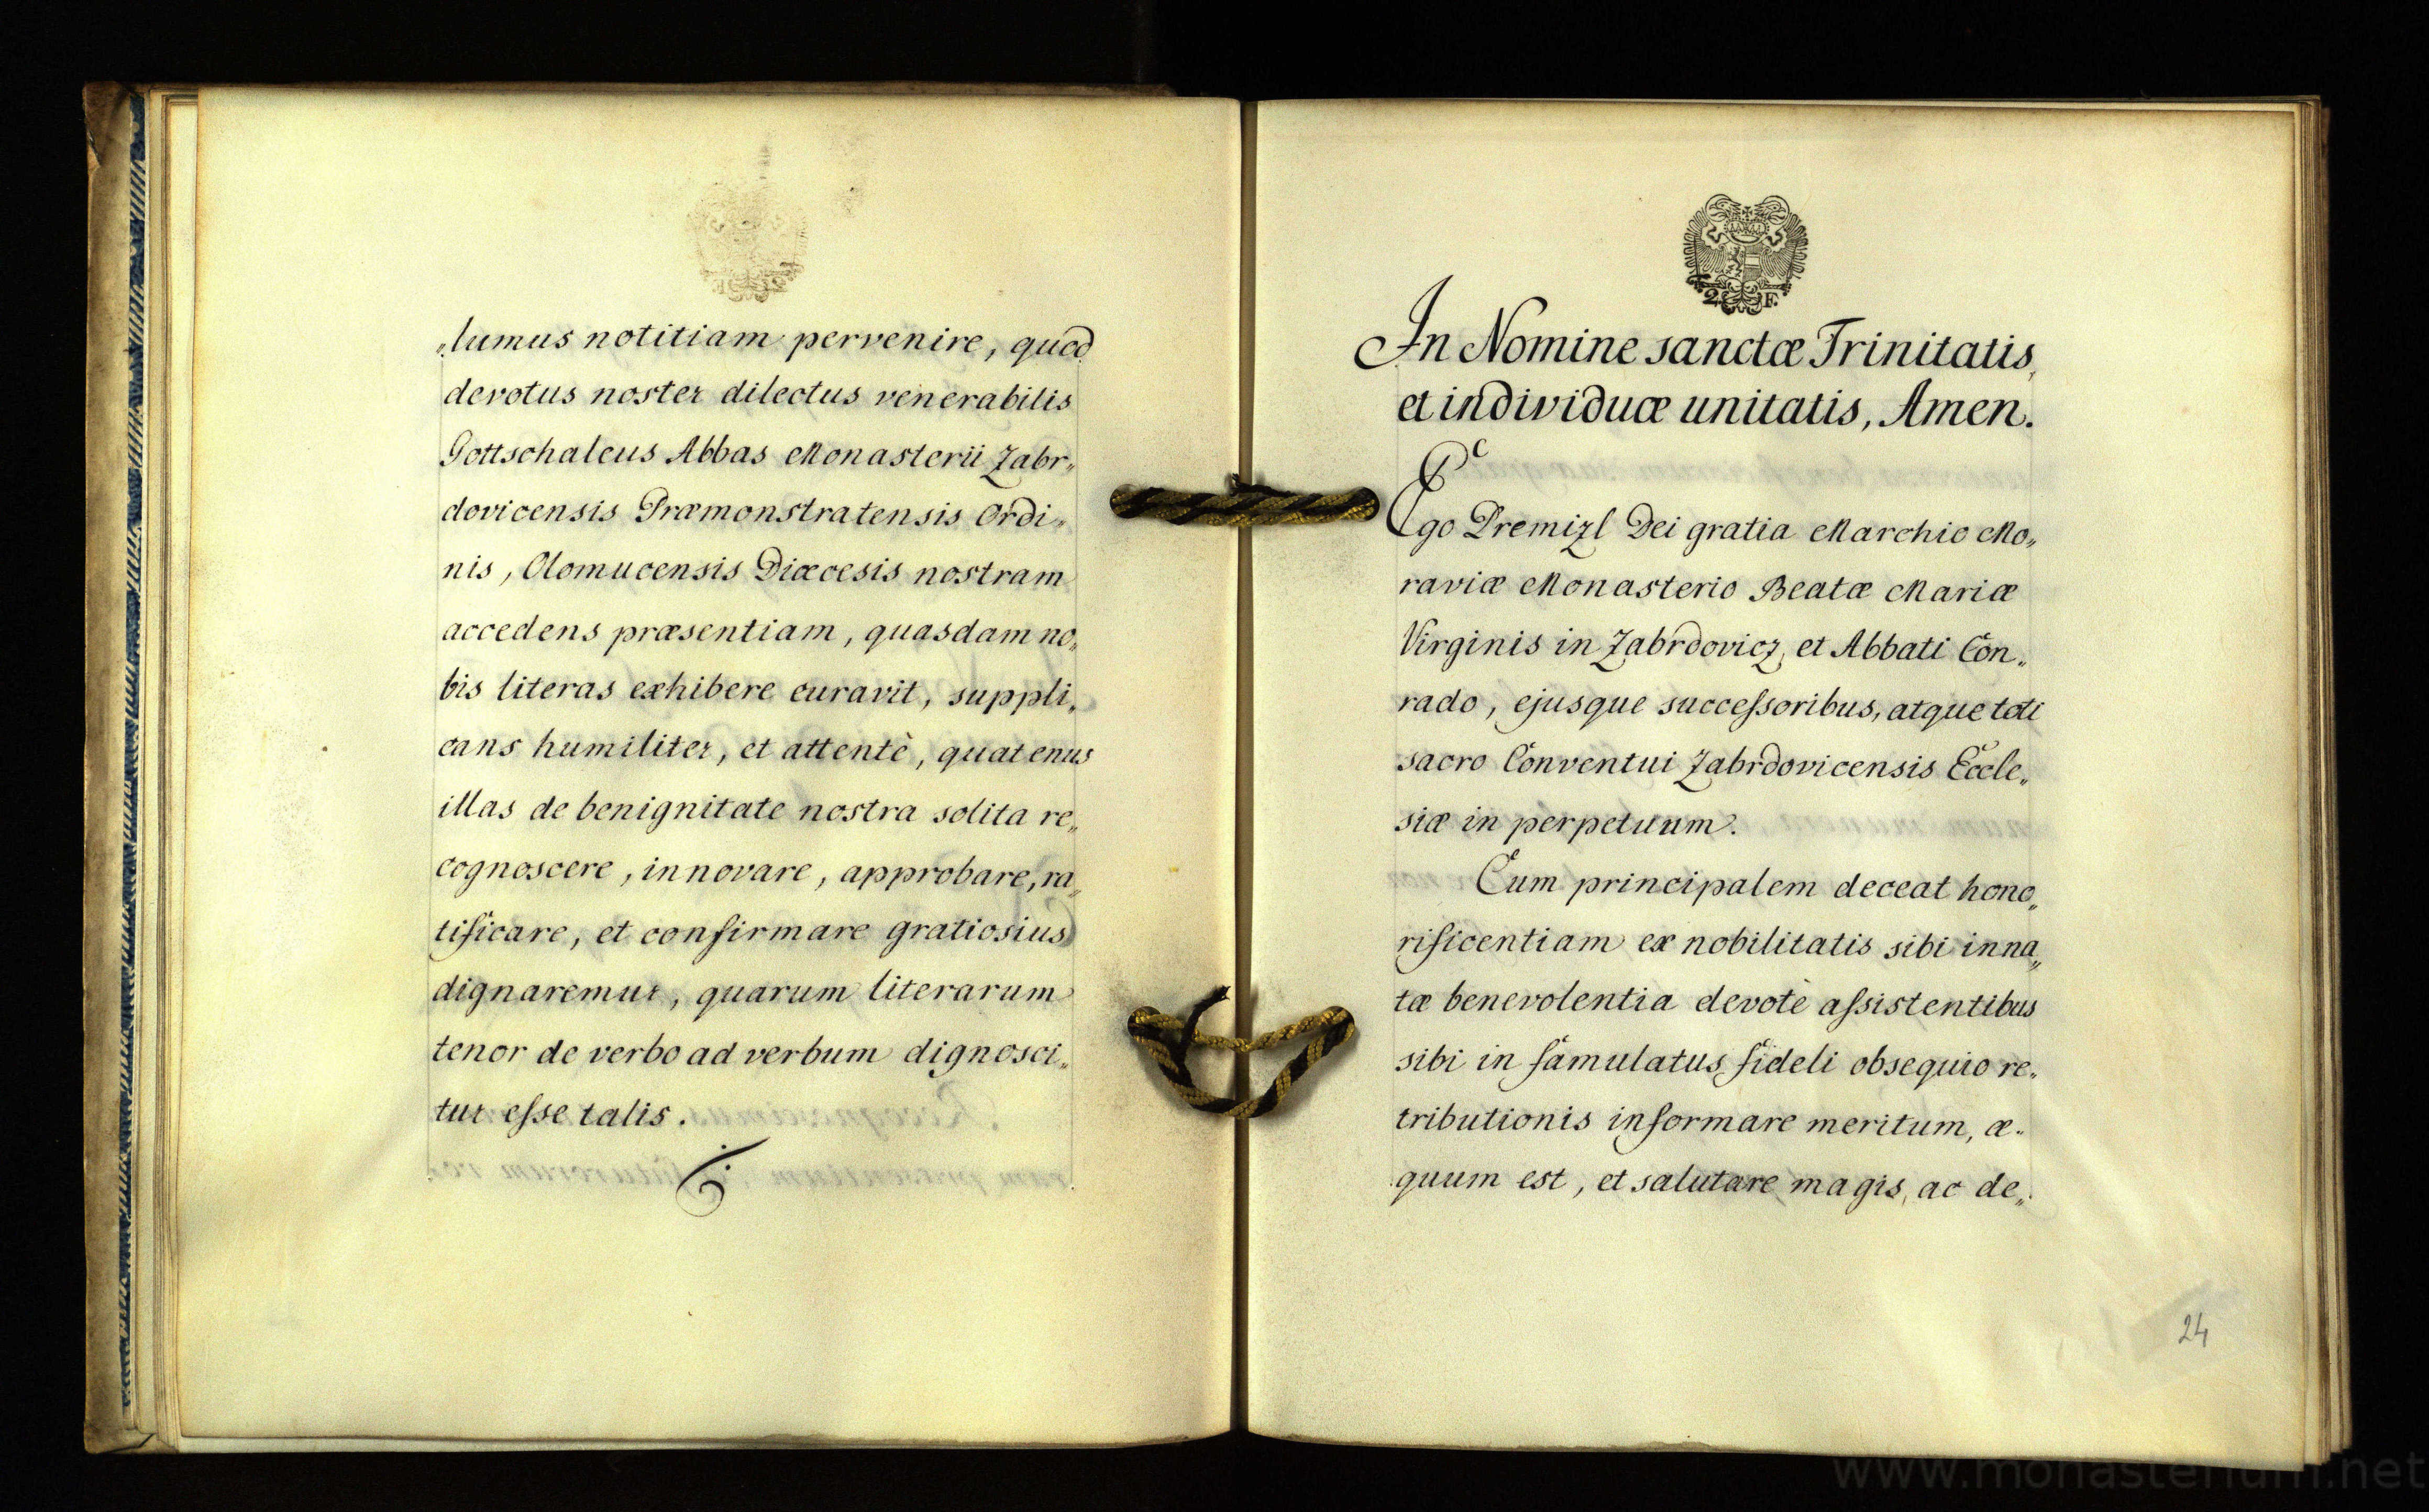 „lumus notitiam pervenire, quod
devotus noster dilectus venerabilis
Gottschalcus Abbas Monasterii Zabr„
dovicensis Præmonstratensis Ordi„
nis, Olomucensis Diœcesis nostram
accedens præsentiam, quasdam no„
bis literas exhibere curavit, suppli„
cans humiliter, et attentè, quatenus
illas de benignitate nostra solita re„
cognoscere, innovare, approbare, ra„
tificare, et confirmare gratiosius
dignaremur, quarum literarum
tenor de verbo ad verbum dignosci„
tur eſse talis.
2. F.
In Nomine sanctæ Trinitatis,
et individuæ unitatis, Amen.
Ego Premizl Dei gratia Marchio Mo„
raviæ Monasterio Beatæ Mariæ
Virginis in Zabrdovicz, et Abbati Con„
rado, ejusque succeſsoribus, atque toti
sacro Conventui Zabrdovicensis Eccle„
siæ in perpetuum.
Cum principalem deceat hono„
rificentiam ex nobilitatis sibi inna„
tæ benevolentia devotè aſsistentibus
sibi in famulatus fideli obsequio re„
tributionis informare meritum, æ„
quum est, et salutare magis, ac de„
24
www.monasterium.net